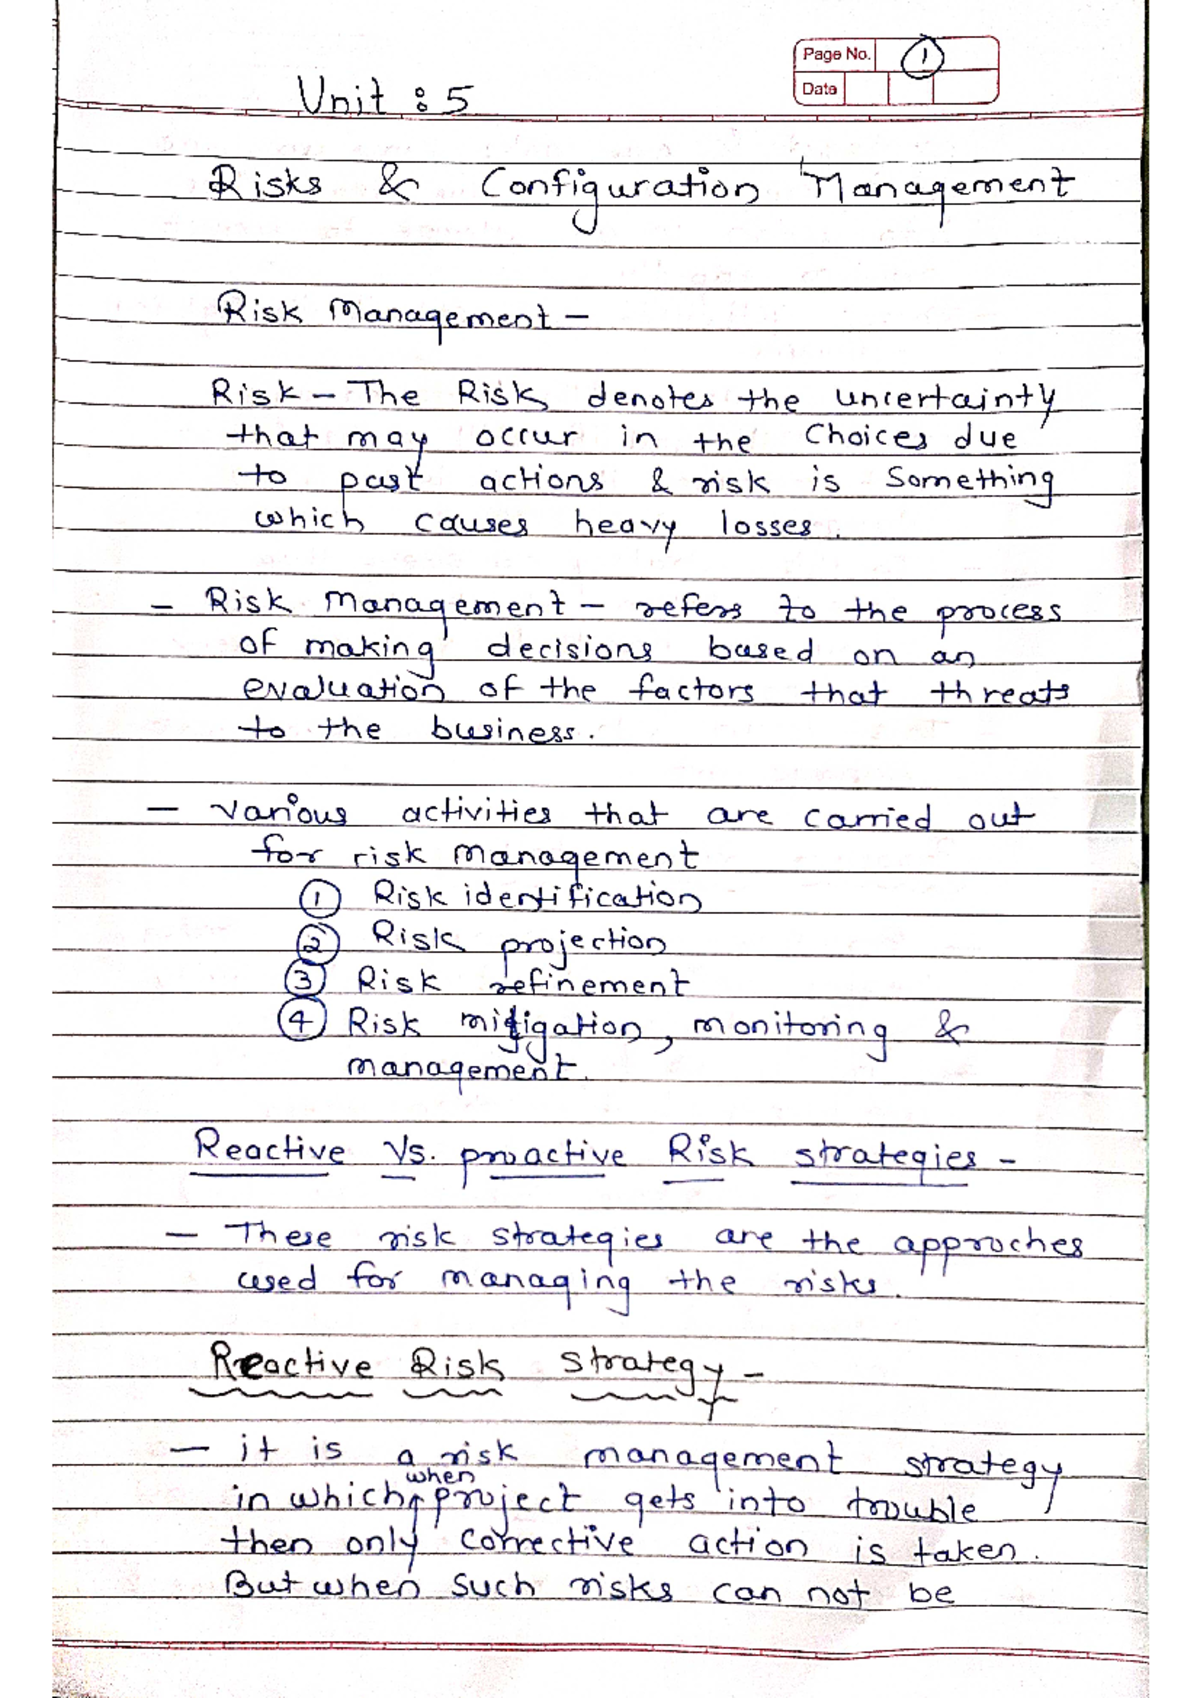 Page No. 1
Date
Unit : 5
Risks & Configuration Management
Risk Management –
Risk – The Risk denotes the uncertainty
that may occur in the Choices due
to past actions & risk is Something
which causes heavy losses.
– Risk Management – refers to the process
of making decisions based on an
evaluation of the factors that threats
to the business.
– Various activities that are carried out
for risk management
1 Risk identification
2 Risk projection
3 Risk refinement
4 Risk mitigation, monitoring &
management.
Reactive Vs. proactive Risk strategies –
– These risk strategies are the approches
used for managing the risks.
Reactive Risk strategy –
– it is a risk management strategy
in which when project gets into trouble
then only corrective action is taken.
But when such risks can not be